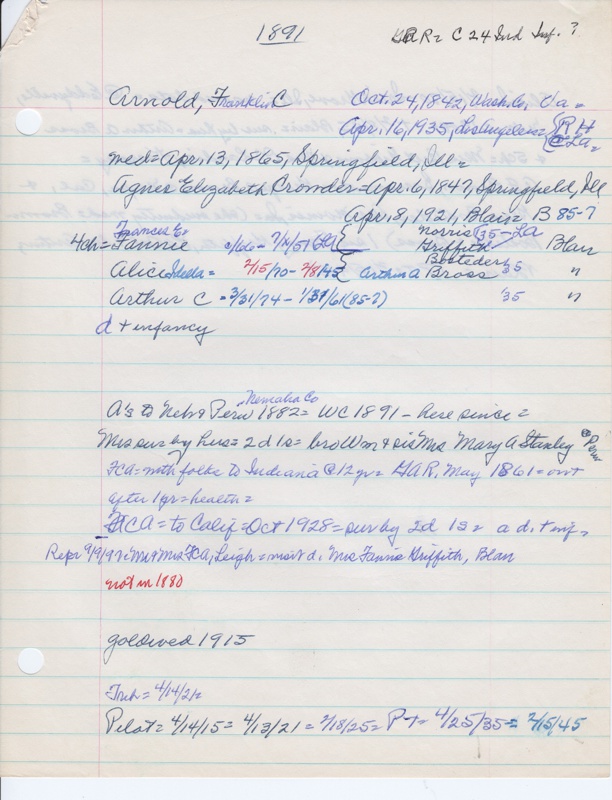 1891 GAR= C 24 Ind Inf. ?
Arnold, Franklin C Oct. 24, 1842, Wash. Co, Va =
Apr. 16, 1935, Los Angeles = RH @ La =
med = Apr. 13, 1865, Springfield, Ill =
Agnes Elizabeth Crowder = Apr. 6, 1847, Springfield, Ill
Apr. 8, 1921, Blair = B 85-7
Frances E. Norris 35 - LA
4ch = Fannie c/66 - (LA) Griffith Blair
Bosteder
Alice = 2/15/70 - 2/8/45 Arthur A Bross 35 "
Arthur C = 3/31/74 - 1/31/61 (85-7) '35 "
d + infancy
Nemaha Co
A's to Neb & Peru 1882 = WC 1891 - here since =
Mrs sur by hus = 2d 1s = bro Wm & sis Mrs Mary A Stanley @ Peru
FCA = with folks to Indiana @ 12 yr = GAR, May 1861 = out
after 1 yr = health =
FCA = to Calif = Oct 1928 = sur by 2d 1s = a d. + inf =
Repr 9/9/97 = Mr & Mrs FCA, Leigh = visit d. Mrs Fannie Griffith, Blair
not in 1880
goldwed 1915
Trib = 4/14/21 =
Pilot = 4/14/15 = 4/13/21 = 2/18/25 = P-T = 4/25/35 = 2/15/45